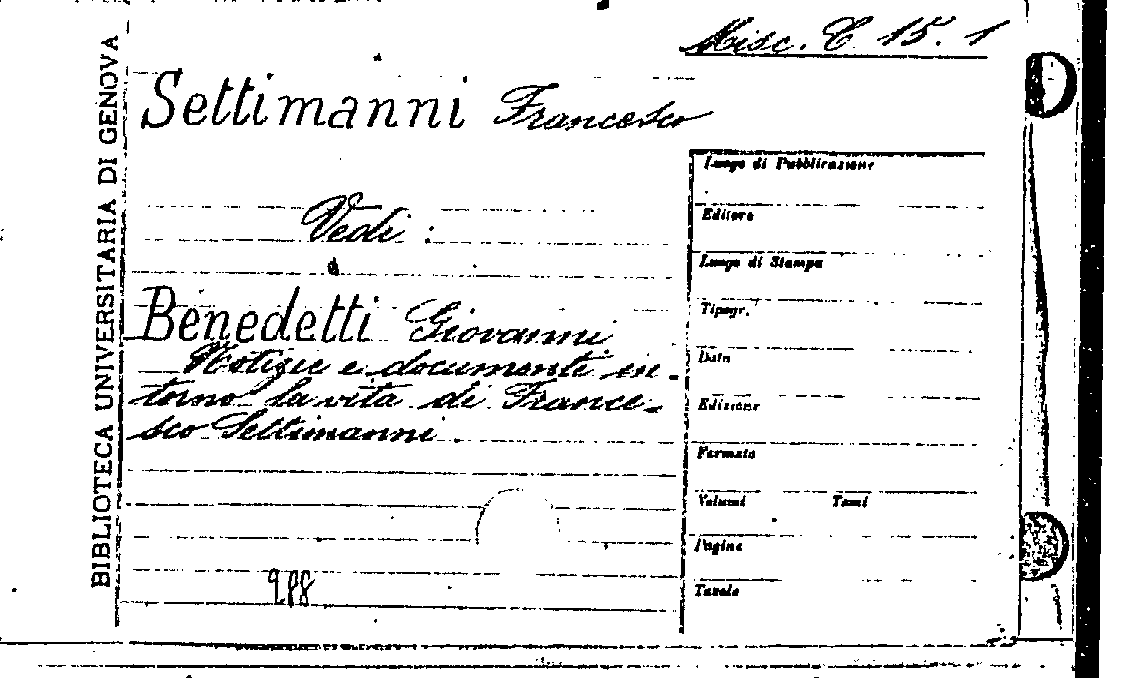 Misc. C 15. 1
Settimanni Francesco
Vedi :
Benedetti Giovanni
Notizie e documenti in-
torno la vita di France-
sco Settimanni
BIBLIOTECA UNIVERSITARIA DI GENOVA
Luogo di Pubblicazione
Editore
Luogo di Stampa
Tipogr.
Data
Edizione
Formato
Volumi Tomi
Pagine
Tavole